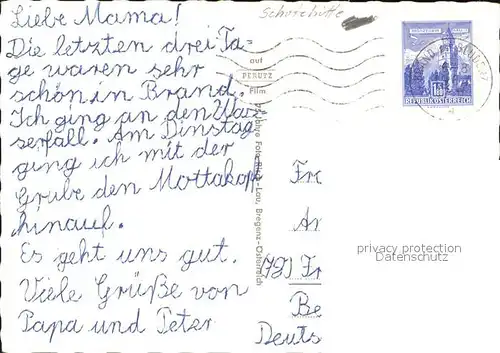 Schutzhütte
Liebe Mama!
Die letzten drei Ta-
ge waren sehr
schön in Brand.
Ich ging an den Was-
serfall. Am Dinstag
ging ich mit der
Grube den Mottakopf
hinauf.
Es geht uns gut.
Viele Grüße von
Papa und Peter
auf
PERUTZ
Film
Jahre Foto Risch-Lau, Bregenz-Österreich
REPUBLIK ÖSTERREICH
Fr
Ar
Fr
Be
Deuts
privacy protection
Datenschutz